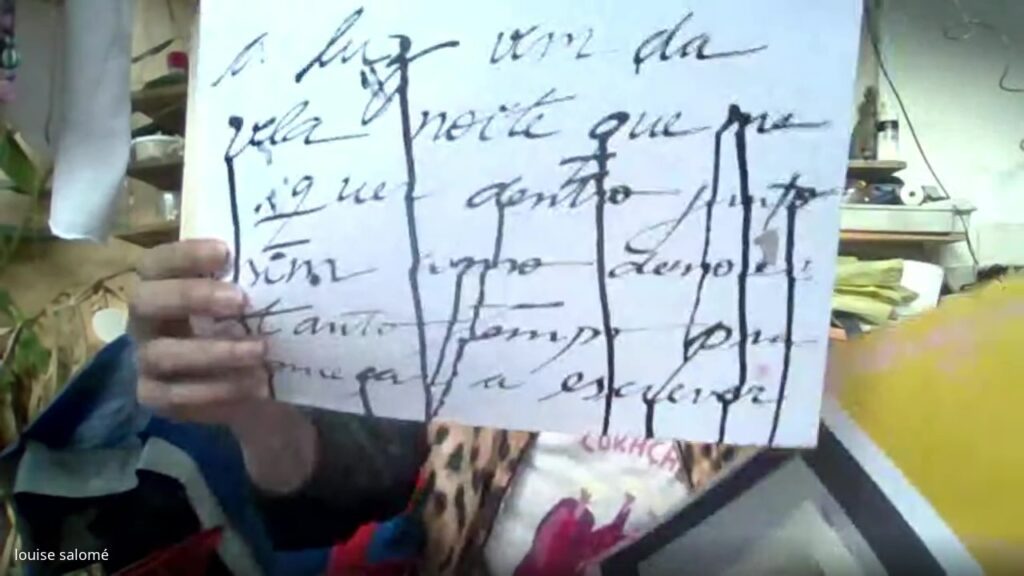 a luz vem da
vela noite que me
quer dentro junto
sim como demorei
tanto tempo pra
começar a escrever
louise salomé